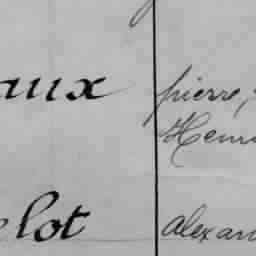 aux pierre,
Henri
elot alexan